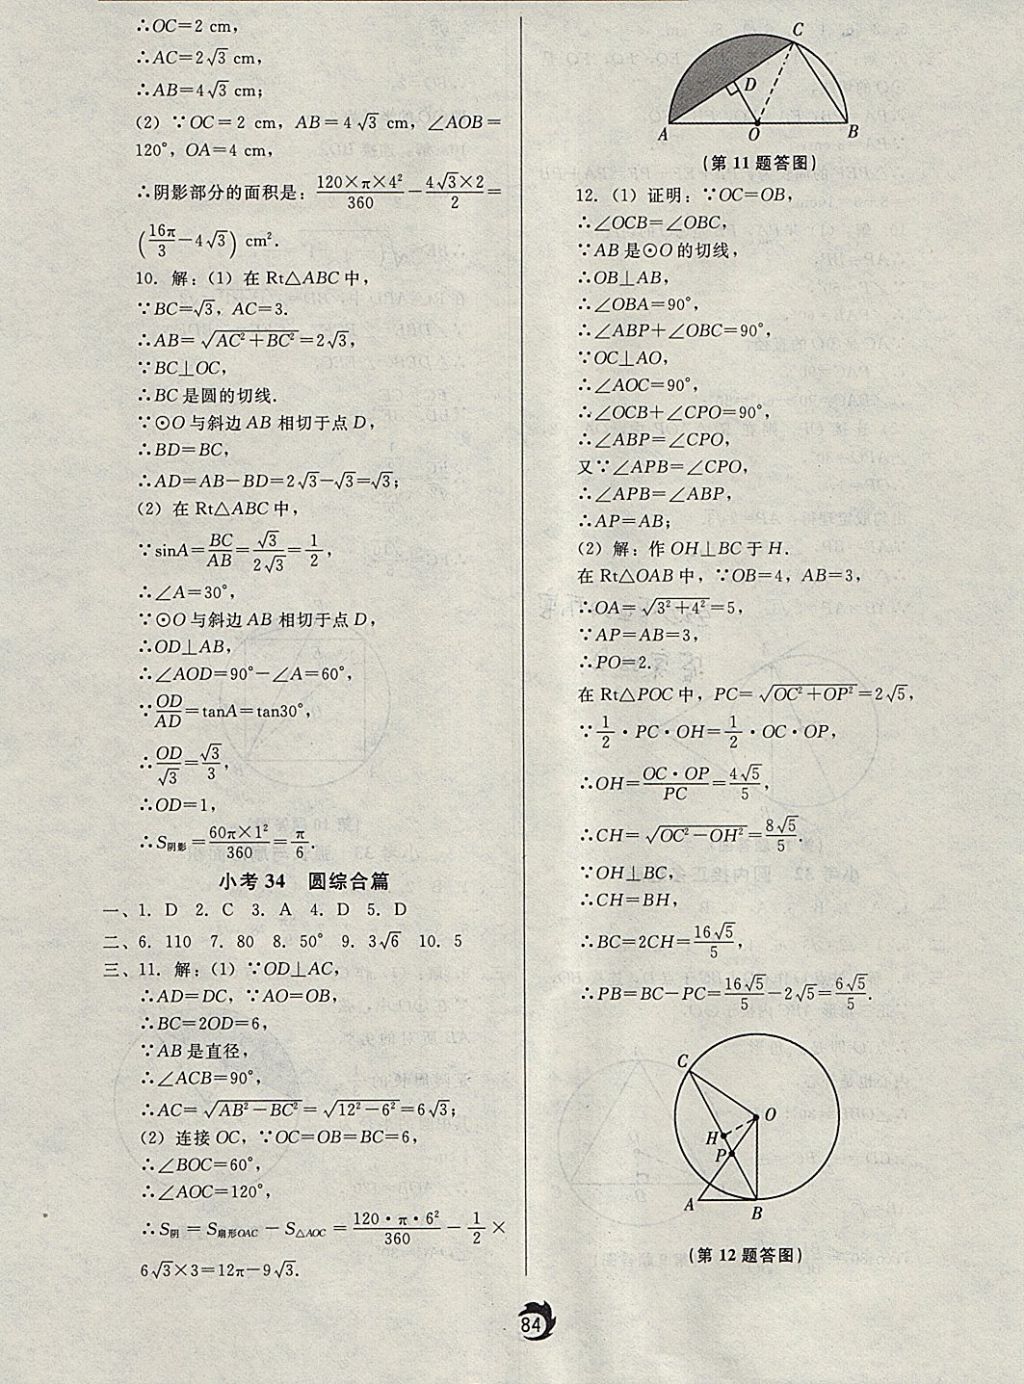 ∴OC=2 cm,
∴AC=2√3 cm,
∴AB=4√3 cm;
(2) ∵OC=2 cm, AB=4√3 cm, ∠AOB=
120°, OA=4 cm,
∴阴影部分的面积是: (120×π×4²)/360 − (4√3×2)/2 =
(16π/3−4√3) cm².
10. 解: (1) 在 Rt△ABC 中,
∵BC=√3, AC=3.
∴AB=√(AC²+BC²)=2√3,
∵BC⊥OC,
∴BC 是圆的切线.
∵⊙O 与斜边 AB 相切于点 D,
∴BD=BC,
∴AD=AB−BD=2√3−√3=√3;
(2) 在 Rt△ABC 中,
∵sinA=BC/AB=√3/(2√3)=1/2,
∴∠A=30°,
∵⊙O 与斜边 AB 相切于点 D,
∴OD⊥AB,
∴∠AOD=90°−∠A=60°,
∵OD/AD=tanA=tan30°,
∴OD/√3=√3/3,
∴OD=1,
∴S阴影=(60π×1²)/360=π/6.
小考 34 圆综合篇
一、1. D 2. C 3. A 4. D 5. D
二、6. 110 7. 80 8. 50° 9. 3√6 10. 5
三、11. 解: (1) ∵OD⊥AC,
∴AD=DC, ∵AO=OB,
∴BC=2OD=6,
∵AB 是直径,
∴∠ACB=90°,
∴AC=√(AB²−BC²)=√(12²−6²)=6√3;
(2) 连接 OC, ∵OC=OB=BC=6,
∴∠BOC=60°,
∴∠AOC=120°,
∴S阴=S扇形OAC−S△AOC=(120·π·6²)/360−1/2×
6√3×3=12π−9√3.
C
D
A O B
(第 11 题答图)
12. (1) 证明: ∵OC=OB,
∴∠OCB=∠OBC,
∵AB 是⊙O 的切线,
∴OB⊥AB,
∴∠OBA=90°,
∴∠ABP+∠OBC=90°,
∵OC⊥AO,
∴∠AOC=90°,
∴∠OCB+∠CPO=90°,
∴∠ABP=∠CPO,
又∵∠APB=∠CPO,
∴∠APB=∠ABP,
∴AP=AB;
(2) 解: 作 OH⊥BC 于 H.
在 Rt△OAB 中, ∵OB=4, AB=3,
∴OA=√(3²+4²)=5,
∵AP=AB=3,
∴PO=2.
在 Rt△POC 中, PC=√(OC²+OP²)=2√5,
∵1/2·PC·OH=1/2·OC·OP,
∴OH=(OC·OP)/PC=4√5/5,
∴CH=√(OC²−OH²)=8√5/5.
∵OH⊥BC,
∴CH=BH,
∴BC=2CH=16√5/5,
∴PB=BC−PC=16√5/5−2√5=6√5/5.
C
O
H
P
A
B
(第 12 题答图)
84